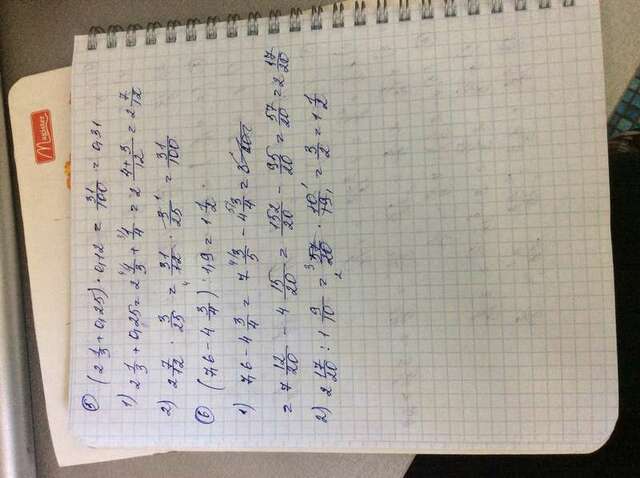 ⑤ (2 1/3 + 0,25) · 0,12 = 31/100 = 0,31
1) 2 1/3 + 0,25 = 2 1/3 + 1/4 = 2 4+3/12 = 2 7/12
2) 2 7/12 · 3/25 = 31/12 · 3/25 = 31/100
⑥ (7,6 - 4 3/4) : 1,9 = 1 1/2
1) 7,6 - 4 3/4 = 7 3/5 - 4 3/4 =
= 7 12/20 - 4 15/20 = 152/20 - 95/20 = 57/20 = 2 17/20
2) 2 17/20 : 1 9/10 = 57/20 · 10/19 = 3/2 = 1 1/2